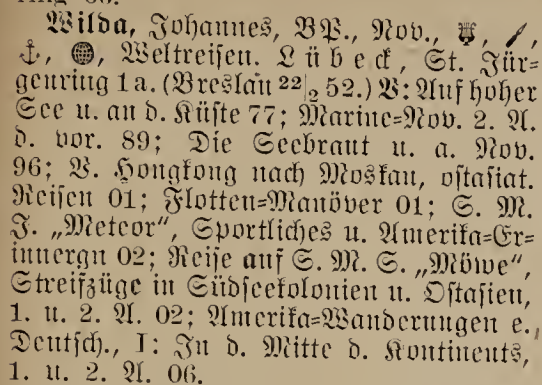 Wilda, Johannes, BP., Nov.,
Weltreisen. Lübeck, St. Jür-
genring 1a. (Breslau 22/2 52.) V: Auf hoher
See u. an d. Küste 77; Marine-Nov. 2. A.
d. vor. 89; Die Seebraut u. a. Nov.
96; V. Hongkong nach Moskau, ostasiat.
Reisen 01; Flotten-Manöver 01; S. M.
J. „Meteor“, Sportliches u. Amerika-Er-
innergn 02; Reise auf S. M. S. „Möwe“,
Streifzüge in Südseekolonien u. Ostasien,
1. u. 2. A. 02; Amerika-Wanderungen e.
Deutsch., I: In d. Mitte d. Kontinents,
1. u. 2. A. 06.